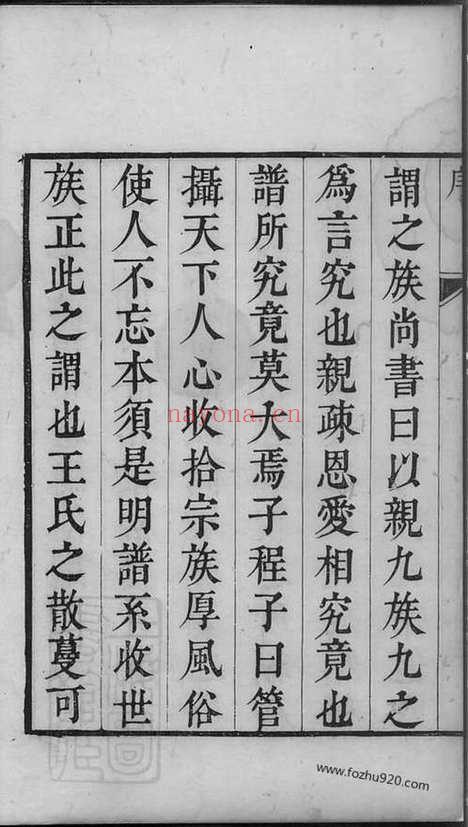 序
謂之族尚書曰以親九族九之
爲言究也親疎恩愛相究竟也
譜所究竟莫大焉子程子曰管
攝天下人心收拾宗族厚風俗
使人不忘本須是明譜系收世
族正此之謂也王氏之散蔓可
nayona.cn
www.fozhu920.com